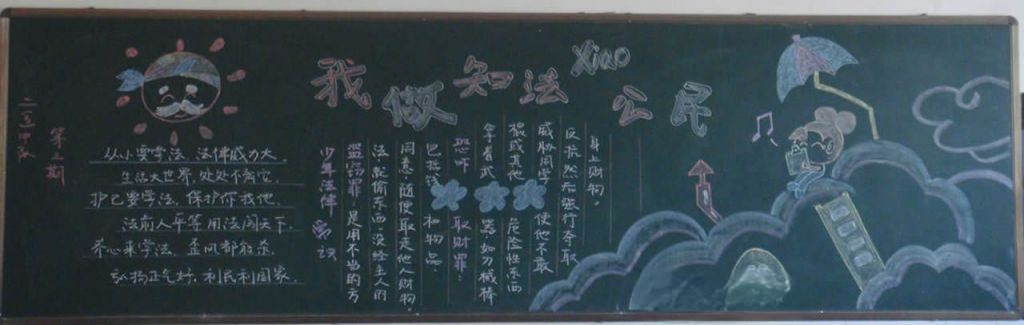 我做知法xiao公民
第三期
从小要学法，法律威力大。
生活大世界，处处不离它。
护己要学法，保护你我他。
法前人平等，用法闯天下。
齐心来学法，歪风都能杀。
弘扬正气好，利民利国家。
少年法律常识
盗窃罪 是用不当的方
法就偷东西，没经主人的
同意，随便取走他人财物
包括钱和物品。
恐吓取财罪：
拿着武器如刀械棒
棍或其他危险性东西
威胁同学，使他不敢
反抗然后强行夺取
身上财物。